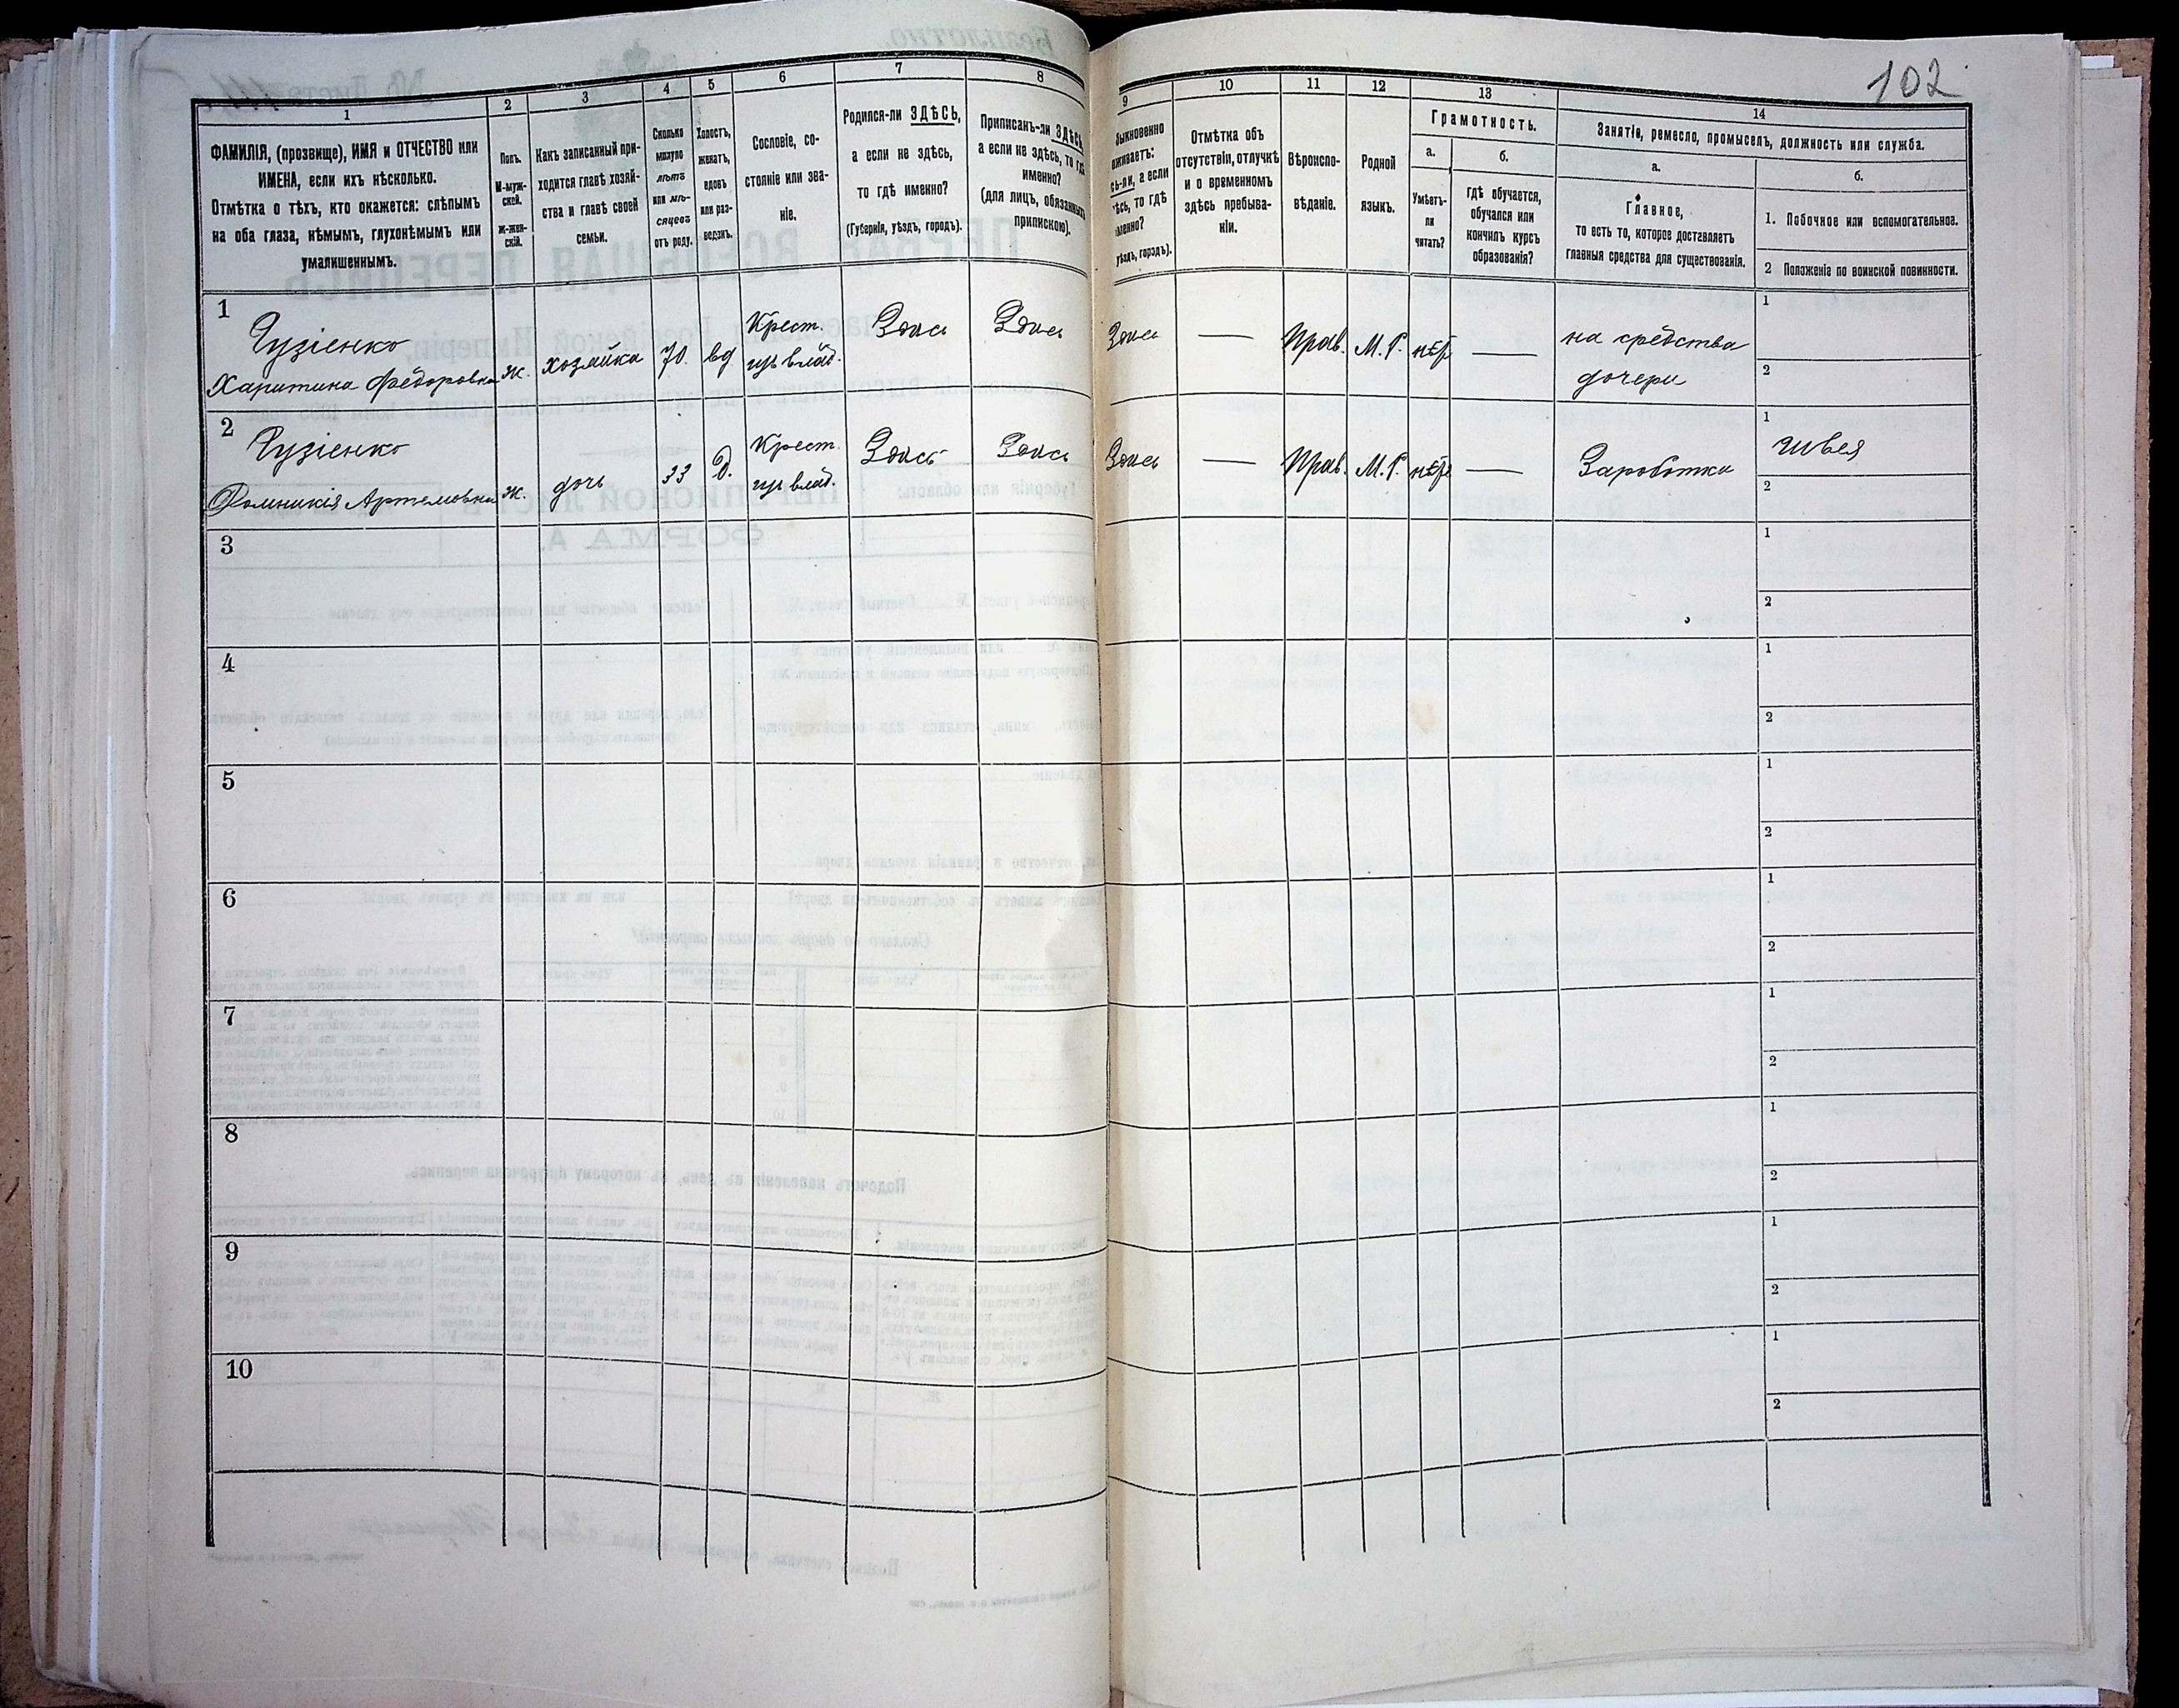 102
1
2
3
4
5
6
7
8
9
10
11
12
13
14
ФАМИЛІЯ, (прозвище), ИМЯ и ОТЧЕСТВО или
ИМЕНА, если ихъ нѣсколько.
Отмѣтка о тѣхъ, кто окажется: слѣпымъ
на оба глаза, нѣмымъ, глухонѣмымъ или
умалишеннымъ.
Полъ.
М-муж-
ской.
ж-жен-
скій.
Какъ записанный при-
ходится главѣ хозяй-
ства и главѣ своей
семьи.
Сколько
минуло
лѣтъ
или мѣ-
сяцевъ
отъ роду.
Холостъ,
женатъ,
вдовъ
или раз-
веденъ.
Сословіе, со-
стояніе или зва-
ніе.
Родился-ли ЗДѢСЬ,
а если не здѣсь,
то гдѣ именно?
(Губернія, уѣздъ, городъ).
Приписанъ-ли ЗДѢСЬ,
а если не здѣсь, то гдѣ
именно?
(для лицъ, обязанныхъ
припискою).
быкновенно
оживаетъ:
сь-ли, а если
ѣсь, то гдѣ
менно?
уѣздъ, городъ).
Отмѣтка объ
отсутствіи, отлучкѣ
и о временномъ
здѣсь пребыва-
ніи.
Вѣроиспо-
вѣданіе.
Родной
языкъ.
Грамотность.
а.
б.
Умѣетъ-
ли
читать?
гдѣ обучается,
обучался или
кончилъ курсъ
образованія?
Занятіе, ремесло, промыселъ, должность или служба.
а.
б.
Главное,
то есть то, которое доставляетъ
главныя средства для существованія.
1. Побочное или вспомогательное.
2 Положеніе по воинской повинности.
1
Гузіенко
Харитина Федоровна
ж.
хозяйка
70.
вд
Крест.
влад.
Здѣсь
Здѣсь
Здѣсь
—
Прав.
М.Р.
нѣт
—
на средства
дочери
1
2
2
Гузіенко
Домникія Артемовна
ж.
дочь
33
Д.
Крест.
влад.
Здѣсь
Здѣсь
Здѣсь
—
Прав.
М.Р.
нѣт
—
Заработки
1
швея
2
3
1
2
4
1
2
5
1
2
6
1
2
7
1
2
8
1
2
9
1
2
10
1
2